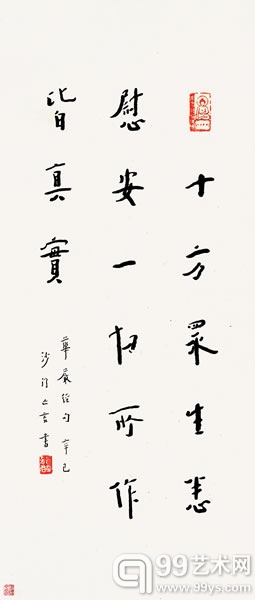 十方眾生悉
慰安一切所作
皆真實
華嚴經句 辛巳
沙門亡言書
99艺术网
www.99ys.com